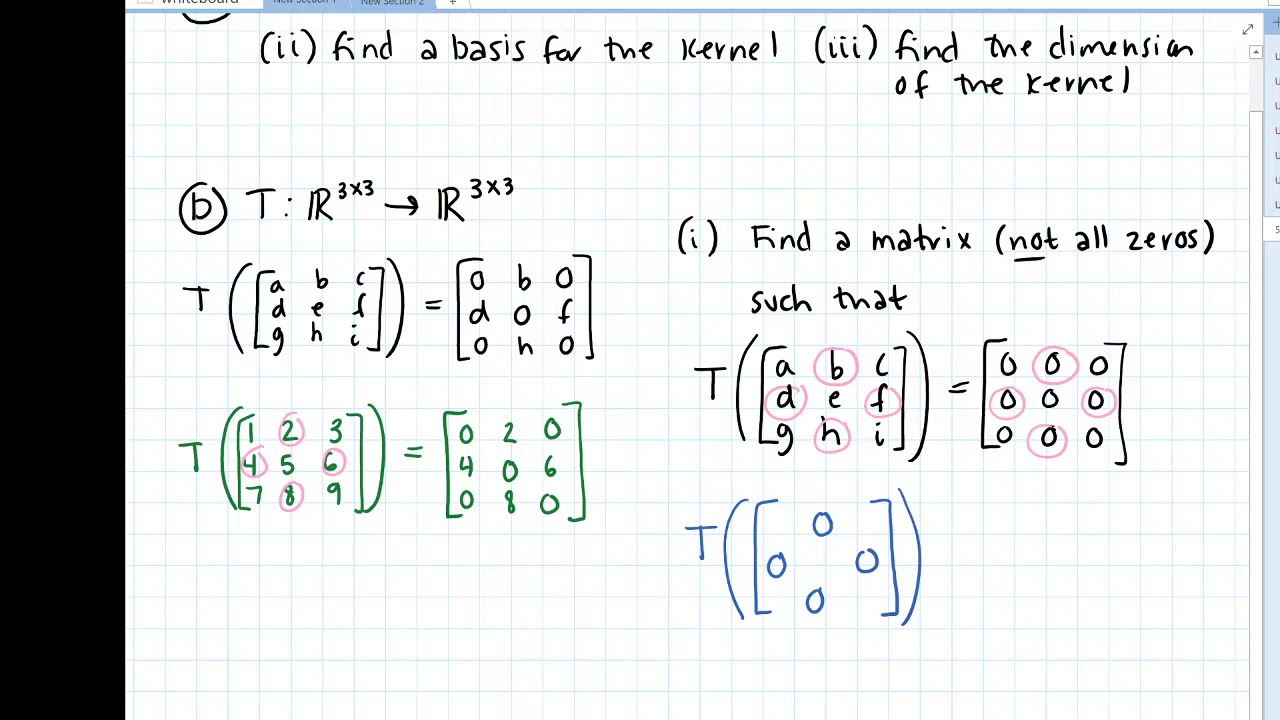 whiteboard New Section 1 New Section 2 +
(ii) find a basis for the kernel (iii) find the dimension
of the kernel
(b) T: ℝ^{3×3} → ℝ^{3×3}
T([a b c
d e f
g h i]) = [0 b 0
d 0 f
0 h 0]
T([1 2 3
4 5 6
7 8 9]) = [0 2 0
4 0 6
0 8 0]
(i) Find a matrix (not all zeros)
such that
T([a b c
d e f
g h i]) = [0 0 0
0 0 0
0 0 0]
T([ 0
0 0
0 ])